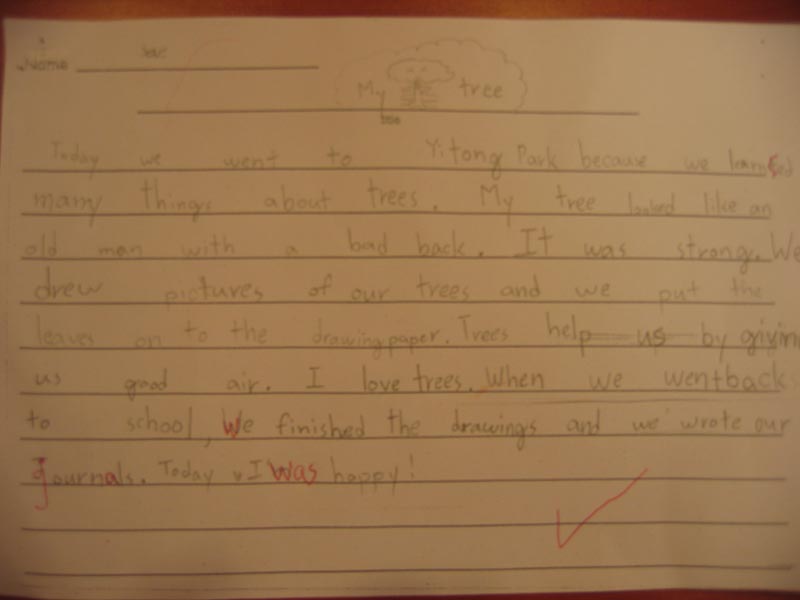 Name
My tree
title
Today we went to Yitong Park because we learned
many things about trees. My tree looked like an
old man with a bad back. It was strong. We
drew pictures of our trees and we put the
leaves on to the drawing paper. Trees help us by givin
us good air. I love trees. When we went backs
to school, We finished the drawings and we wrote our
journals. Today I was happy!